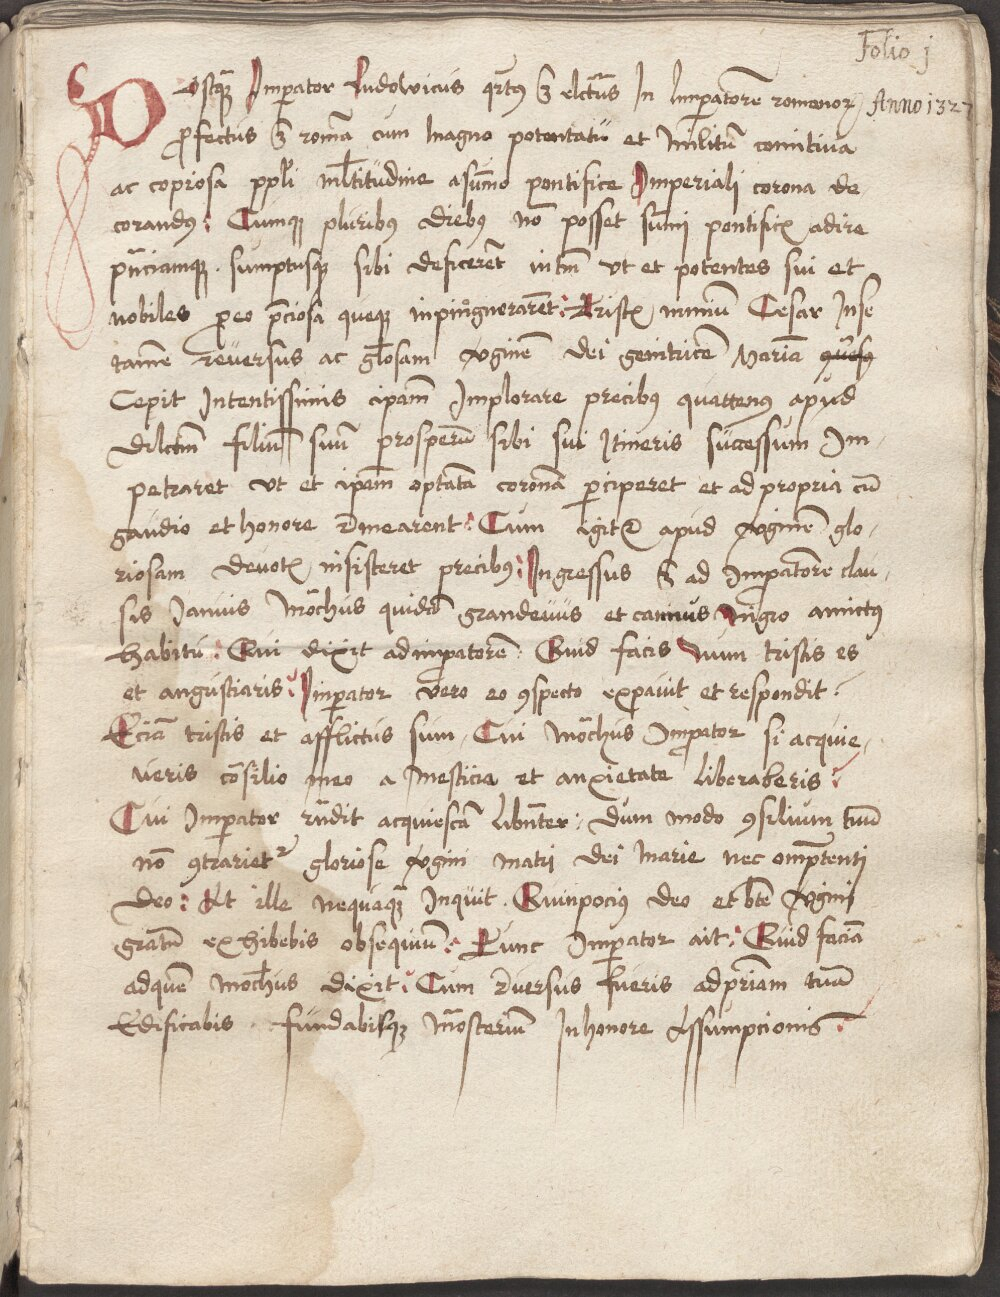 Folio j
Postq̄ꝫ Imperator Ludowicus qrtꝰ ē elct̄us In Imperatorē romanoꝝ Anno 1327
ꝓfectus ē romā cum magno potentatu et militū comitiua
ac copiosa ppl̄i ml̄titudine asūmo pontifice Imperiali corona de
corandꝰ: Cumqꝫ pluribꝰ diebꝰ nō posset sūmi pontificꝭ adire
pn̄ciamqꝫ sumptusqꝫ sibi deficerēt intm̄ vt et potentes sui et
nobiles ꝓeo p̄ciosa queqꝫ inpingnorarēt: Tristꝭ nimiū Cesar Inse
tamē reuersus ac gl̄osam v̄ginē dei genitricē Mariā
Cepit Intentissimis ip̄am Implorare precibꝰ quattenꝰ apud
dilctm̄ filiū suū prosperū sibi sui Itineris successum Im-
petraret vt et ip̄em optatā coronā p̄ciperet et ad propria cū
gaudio et honore rmearent: Cum igitr apud v̄ginē glo-
riosam deuotꝭ insisteret precibꝰ: Ingressus ē ad Imperatorē clau-
sis Januis mōchus quidā grandeuus et cannus nigro amictꝰ
habitu: Qui dixit ad imperatorē: Quid facis num tristis es
et angustiaris: Imperator vero eo ꝯspecto expauit et respondit:
Eciā tristis et afflictus sum. Cui mōchus Imperator si acquie-
ueris cōsilio meo a mesticia et anxietate liberaberis:
Cui Imperator rn̄dit acquiescā libn̄ter: Dum modo ꝯsilium tuū
nō ꝯtrarietr gloriose v̄gini matri dei Marie nec omp̄tenti
deo: At ille nequaq̄ꝫ Inquit. Quinpociꝰ deo et bt̄e v̄gini
gratū exhibebis obsequiū: Tunc Imperator ait: Quid faciā
adquē mōchus dixit: Cum rversus fueris ad p̄riam tuā
Edificabis. fundabisqꝫ mōsteriū In honore Assumpcionis